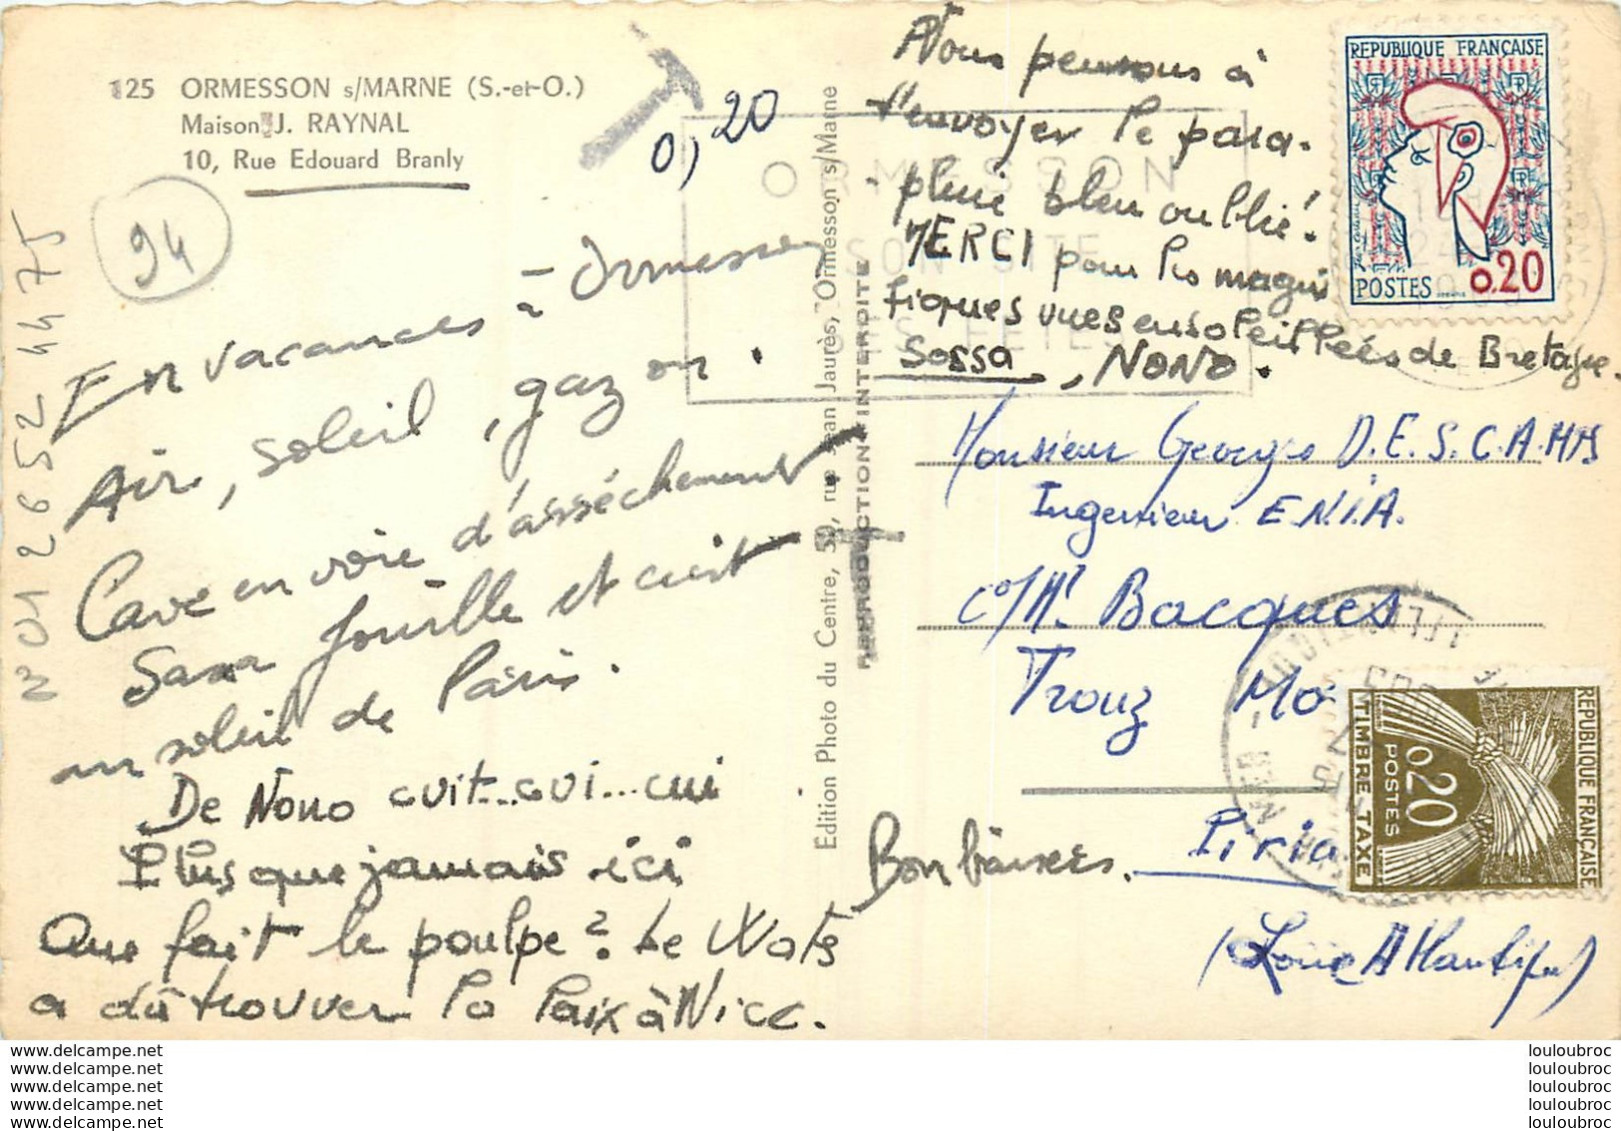 125 ORMESSON s/MARNE (S.-et-O.)
Maison J. RAYNAL
10, Rue Edouard Branly
94
N°012652 4475
0,20
En vacances - Ormesson
Air, soleil, gazon.
Cave en voie d'assèchement
Sana fouille et cuit
au soleil de Paris.
De Nono cuit...cui...cui
Plus que jamais ici
Que fait le poulpe? Le Wots
a dû trouver la Paix à Nice.
Edition Photo du Centre, 59, rue Jean Jaurès, Ormesson s/Marne
REPRODUCTION INTERDITE
Nous pensons à
t'envoyer le para-
pluie bleu oublié!
MERCI pour les magni
fiques vues ensoleillées de Bretagne.
Sossa, NONO.
ORMESSON
SON SITE
SES FÊTES
REPUBLIQUE FRANÇAISE
POSTES 0.20
Monsieur Georges D.E.S.C.A.MPS
Ingenieur E.N.I.A.
c/o Mr Bacques
Trouz Mo
Piria
(Loire Atlantique)
Bon baisers.
REPUBLIQUE FRANÇAISE
0,20
POSTES
TIMBRE TAXE
www.delcampe.net
www.delcampe.net
www.delcampe.net
www.delcampe.net
www.delcampe.net
louloubroc
louloubroc
louloubroc
louloubroc
louloubroc